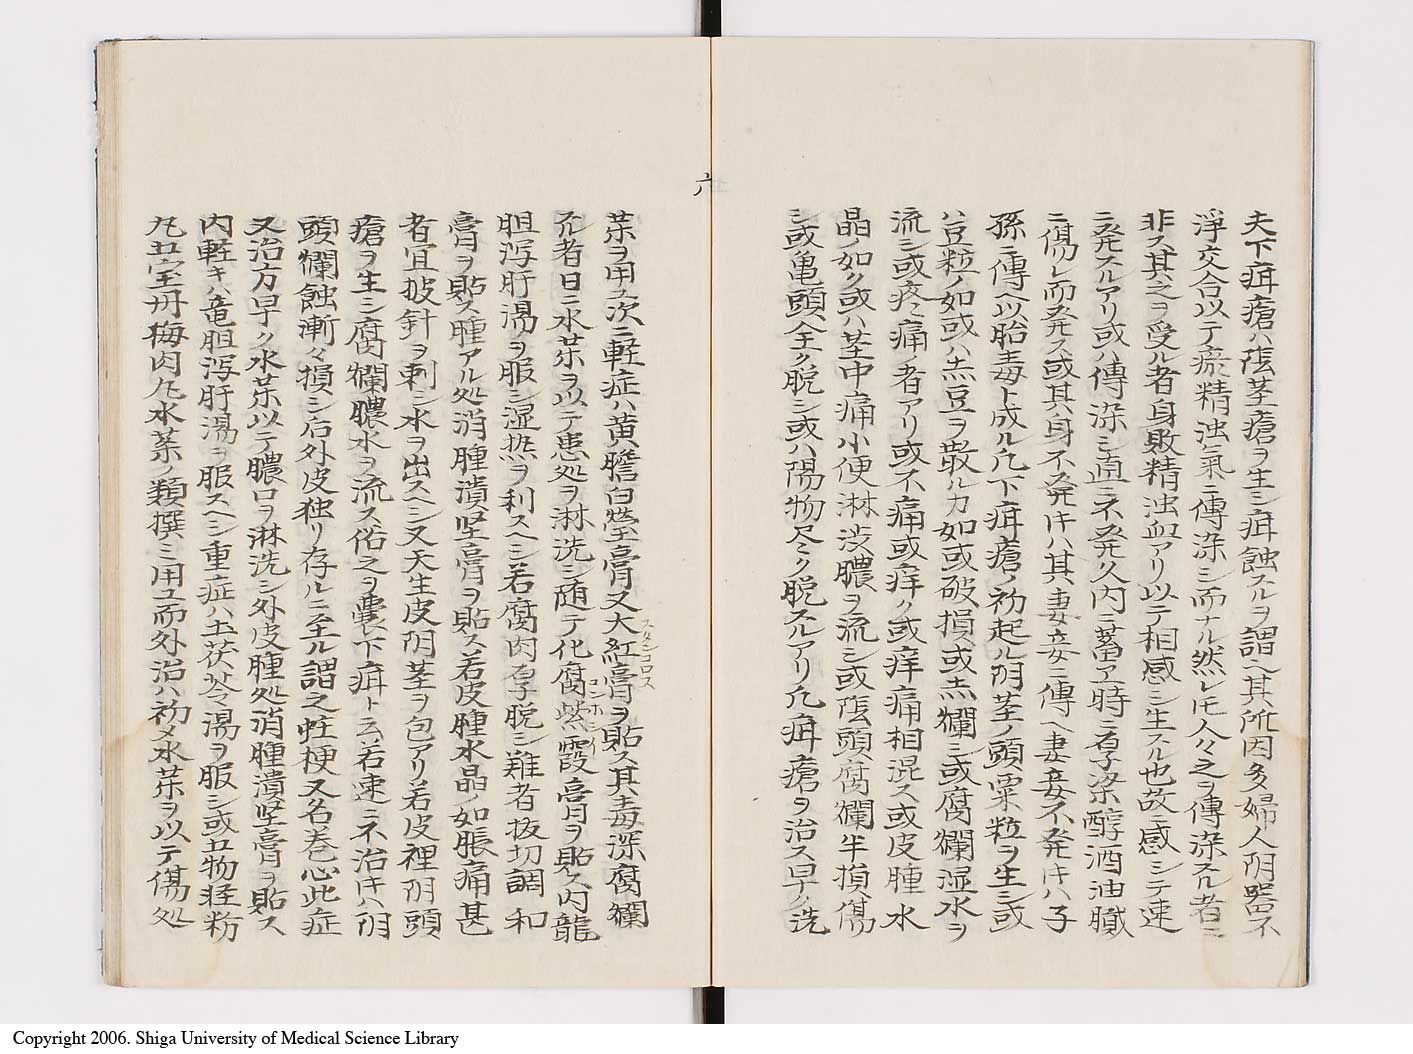 夫下疳瘡ハ陰茎瘡ヲ生シ疳蝕スルヲ謂之其所因多婦人阴器不
浄交合以テ瘀精浊氣ニ傳染シ而ナル然レ𪜈人々之ヲ傳染スル者ニ
非ス其之ヲ受ル者身敗精浊血アリ以テ相感シ生スル也故ニ感シテ速
ニ発スルアリ或ハ傳染シ直ニ不発久内ニ蓄ヱ時ニ厚梁醇酒油膩
ニ傷レ而発ス或其身不発𪜈ハ其妻妾ニ傳ヘ妻妾不発𪜈ハ子
孫ニ傳ヘ以胎毒ト成ル凡下疳瘡ノ初起ル阴茎ノ頭粟粒ヲ生シ或
ハ豆粒ノ如或ハ赤豆ヲ散ルカ如或破損或赤爛シ或腐爛湿水ヲ
流シ或疼痛ノ者アリ或不痛或痒ク或痒痛相混ス或皮腫水
晶ノ如ク或ハ茎中痛小便淋渋膿ヲ流シ或陰頭腐爛半損傷
シ或亀頭全ク脱シ或ハ陽物尽ク脱スルアリ凡疳瘡ヲ治ス早ク洗
六
薬ヲ用ユ次ニ軽症ハ黄膽白蛍膏又大紅膏ヲ貼ス其毒深腐爛
スタンコロス
冗者日ニ水薬ヲ以テ患処ヲ淋洗シ随テ化腐紫霞膏ヲ貼ス内龍
胆泻肝湯ヲ服シ湿热ヲ利スヘシ若腐肉厚脱シ難者抜切調和
膏ヲ貼ス腫アル処消腫潰坚膏ヲ貼ス若皮腫水晶ノ如脹痛甚
者宜披針ヲ刺シ水ヲ出スヘシ又天生皮阴茎ヲ包アリ若皮裡阴頭
瘡ヲ生シ腐爛膿水ヲ流ス俗之ヲ嚢下疳ト云若速ニ不治𪜈ハ阴
頭爛蝕漸々損シ后外皮独リ存ルニ至ル謂之蛀梗又名巻心此症
又治方早ク水薬以テ膿口ヲ淋洗シ外皮腫処消腫潰坚膏ヲ貼ス
内軽キハ竜胆泻肝湯ヲ服スヘシ重症ハ土茯苓湯ヲ服シ或五物䊀粉
丸五宝丹梅肉丸水薬ノ類撰ミ用ユ而外治ハ初メ水薬ヲ以テ傷処
Copyright 2006. Shiga University of Medical Science Library